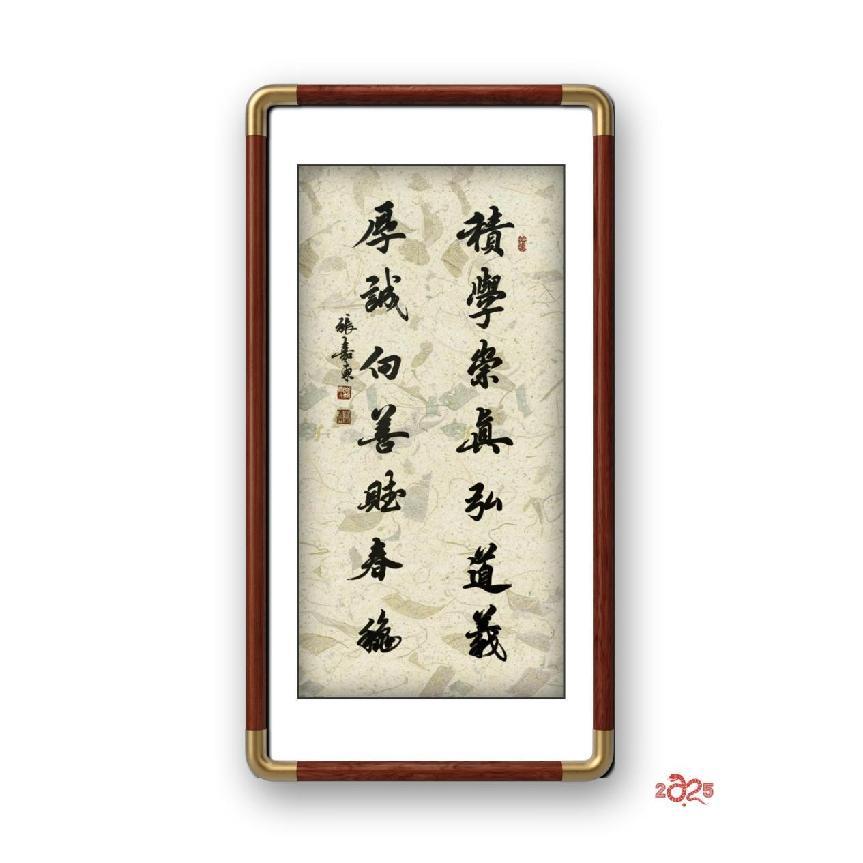 積學崇真弘道義
厚誠向善賦春穐
張嘉東
2025